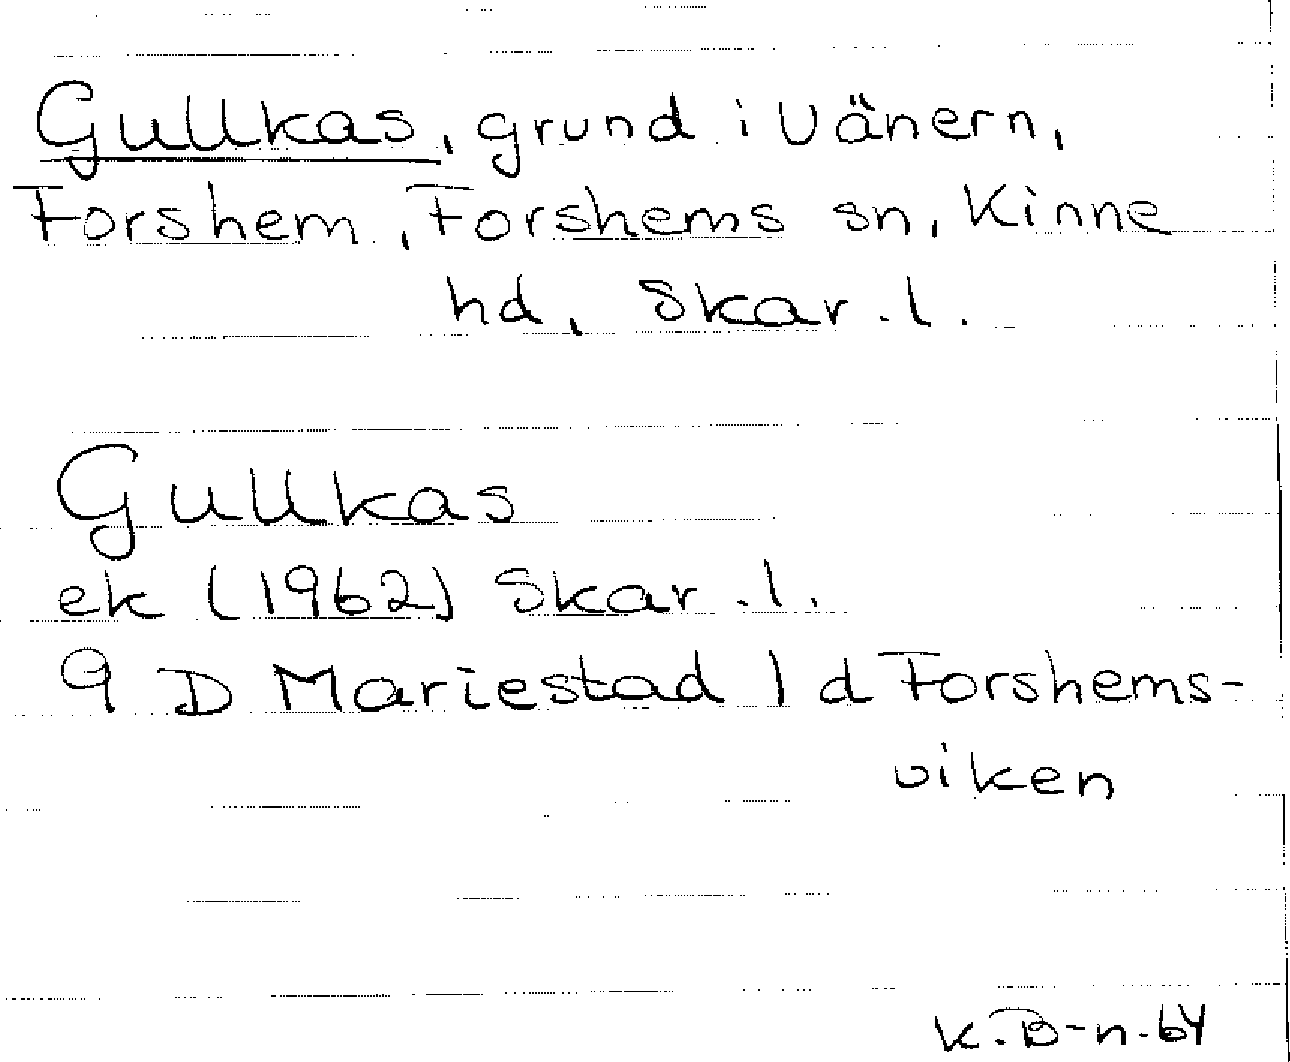 Gullkas, grund i Vänern,
Forshem, Forshems sn, Kinne
hd, Skar. l.
Gullkas
ek (1962) Skar. l.
9 D Mariestad 1 d Forshems-
viken
K. B-n. 64